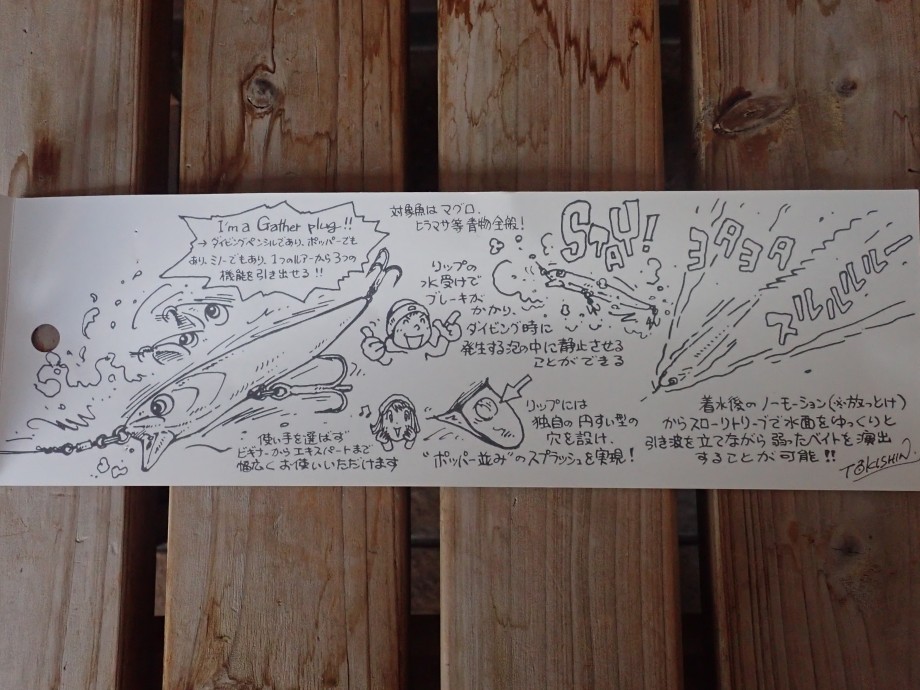 I'm a Gather plug!!
→ ダイビングペンシルであり、ポッパーでも
あり、ミノーでもあり、1つのルアーから3つの
機能を引き出せる!!
対象魚はマグロ、
ヒラマサ等青物全般!
リップの
水受けで
ブレーキが
かかり、
ダイビング時に
発生する泡の中に静止させる
ことができる
STAY!
ヨタヨタ
スルルルルー
使い手を選ばず
ビギナーからエキスパートまで
幅広くお使いいただけます
♪
リップには
独自の円すい型の
穴を設け、
"ポッパー並み"のスプラッシュを実現!
着水後のノーモーション(※放っとけ)
からスローリトリーブで水面をゆっくりと
引き波を立てながら弱ったベイトを演出
することが可能!!
TOKISHIN.